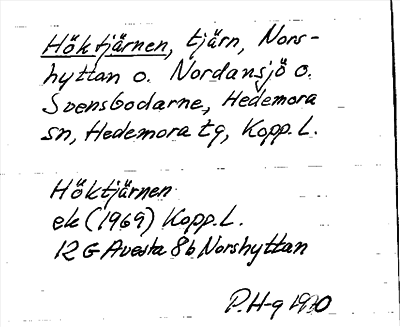 Höktjärnen, tjärn, Nors-
hyttan o. Nordansjö o.
Svensbodarne, Hedemora
sn, Hedemora tg, Kopp. L.
Höktjärnen
ek (1969) Kopp. L.
12 G Avesta 8b Norshyttan
P. H-g 1970